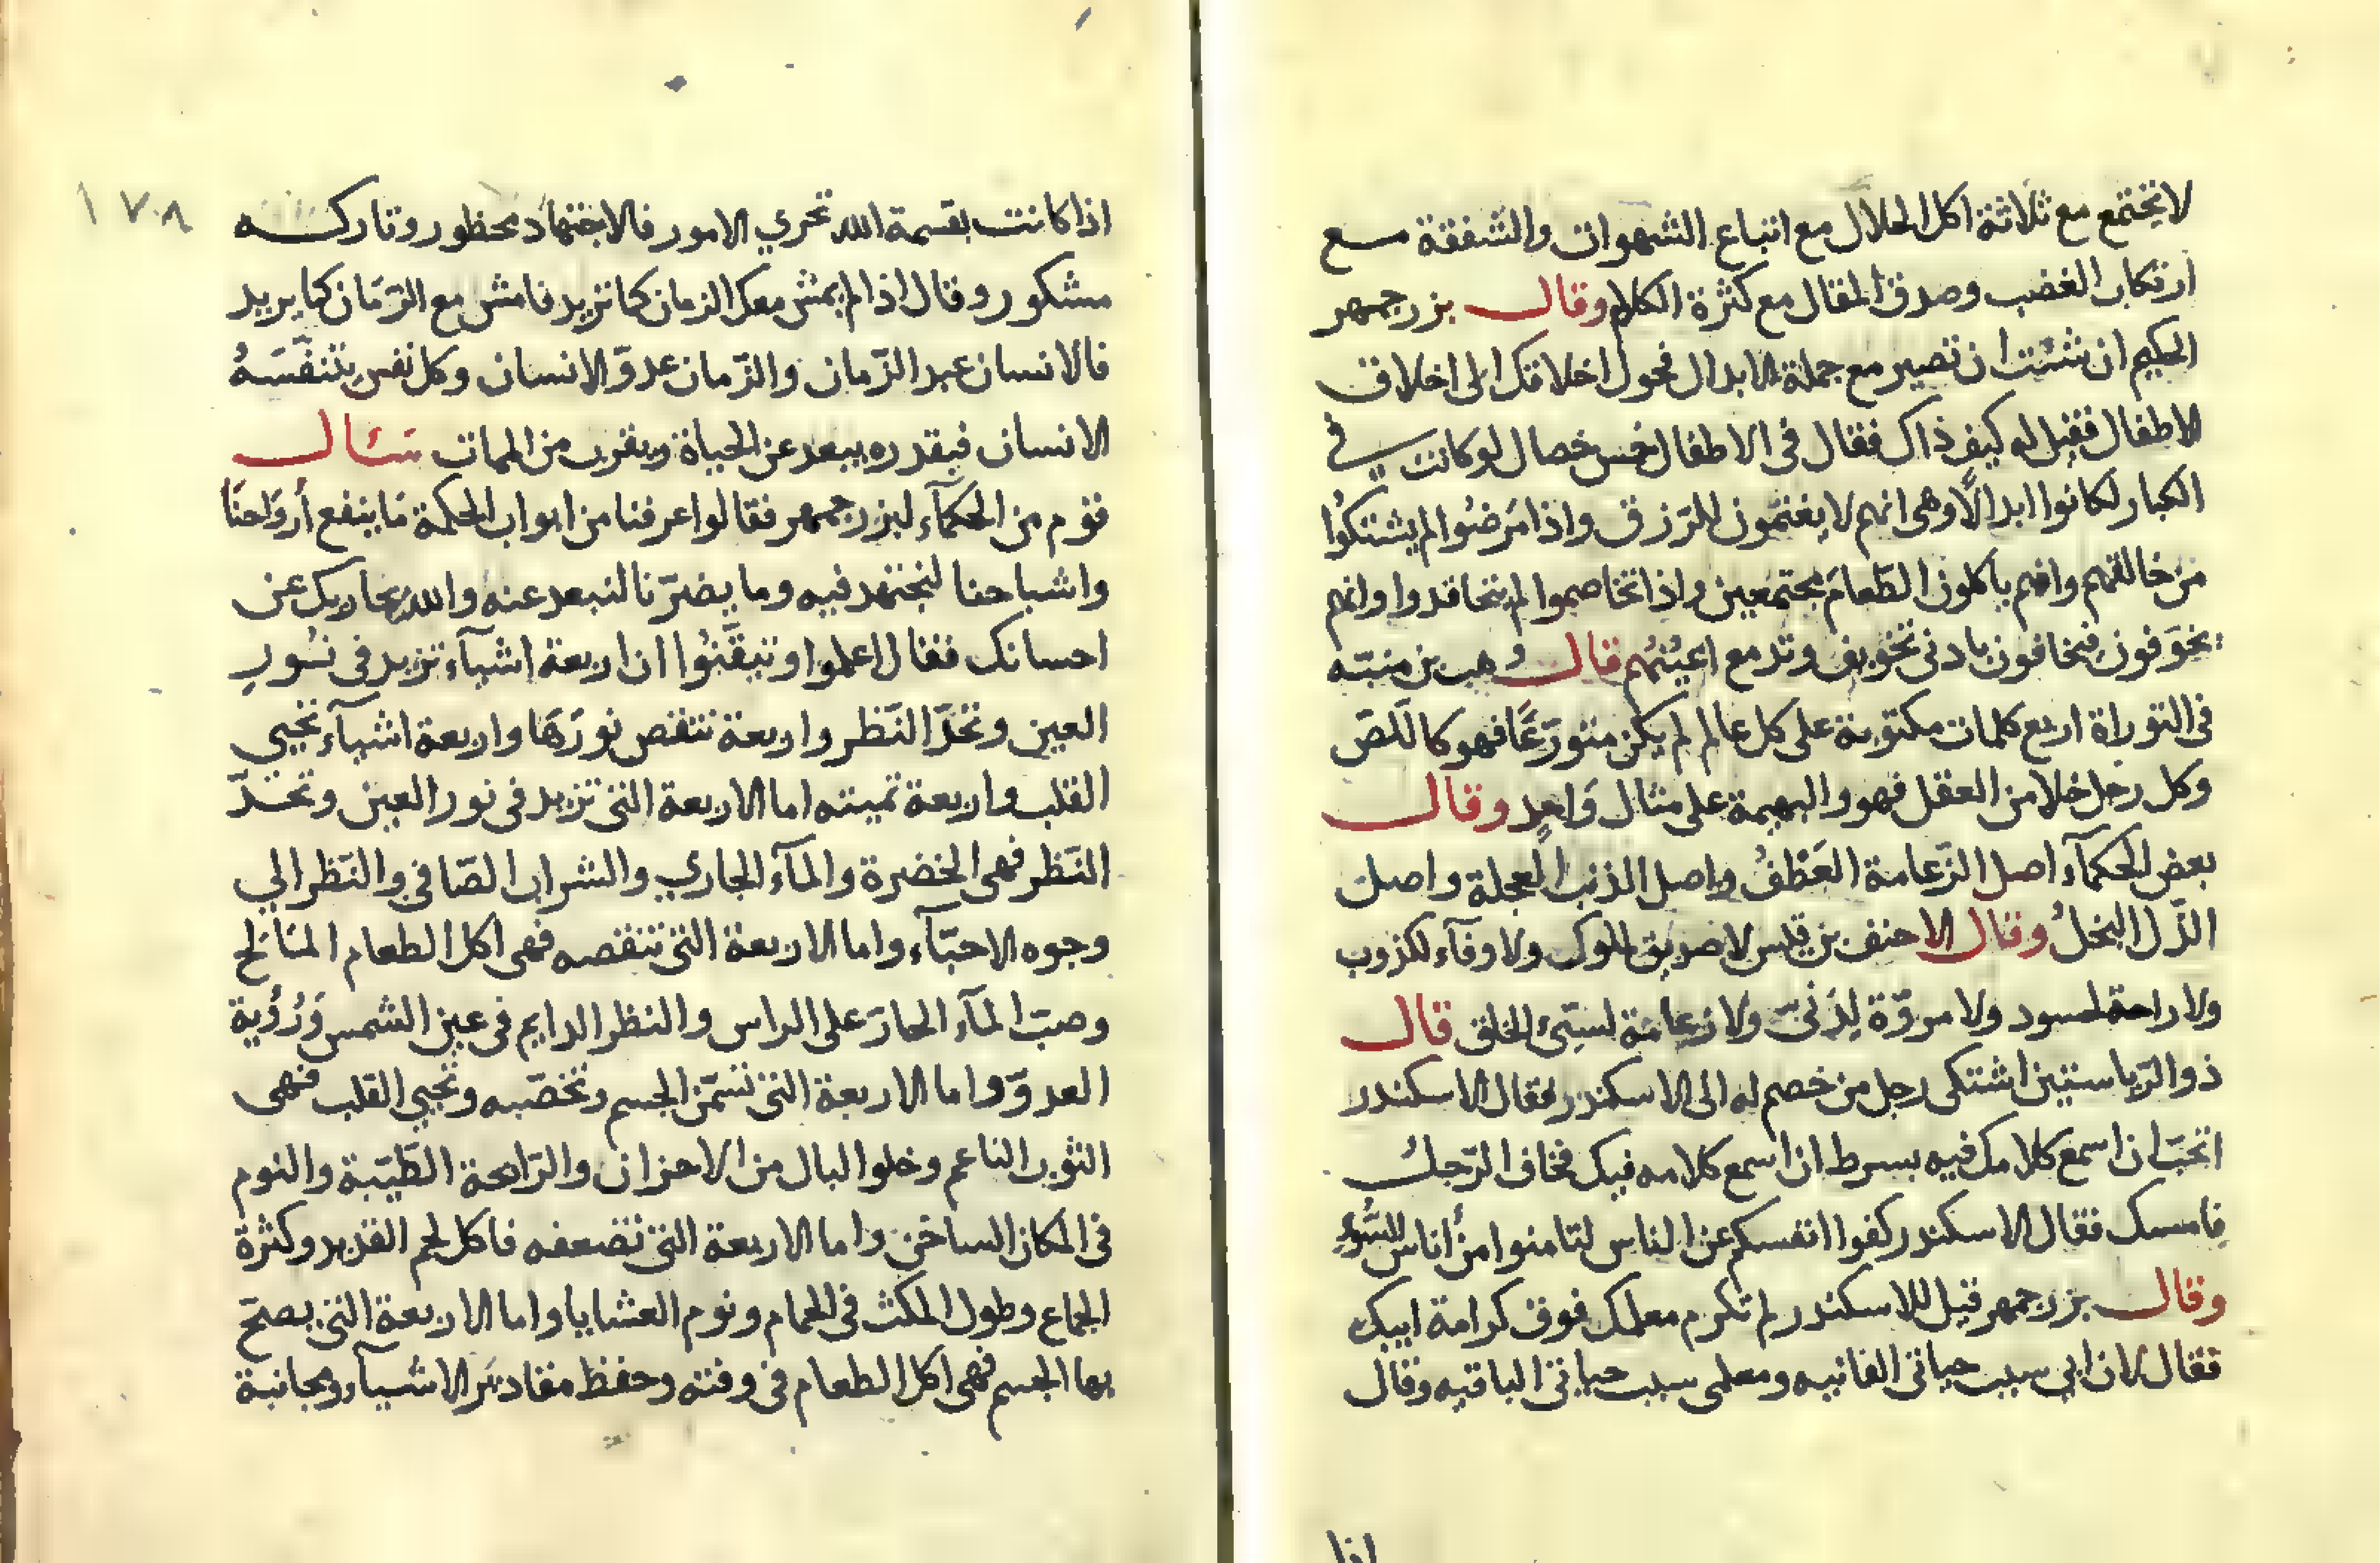 لا تجتمع مع ثلاثة اكل الحلال مع اتباع الشهوات والشفقة مع
ارتكاب الغضب وصدق المقال مع كثرة الكلام وقال بزرجمهر
الحكيم ان شئت ان تصير مع جملة الابدال فحول اخلاقك الى اخلاق
الاطفال فقيل له كيف ذاك فقال فى الاطفال خمس خصال لو كانت في
الكبار لكانوا ابدالًا وهى انهم لا يغتمّون للرّزق واذا مَرضُوا لم يشتكُوا
من خالقهم وانهم ياكلون الطّعامَ مجتمعين واذا تخاصموا لم يتحاقدوا وانهم
يخوّفون فيخافون بادنى تخويف وتدمع اعيُنُهُم قال وهب بن منبّه
فى التوراة اربع كلمات مكتوبة على كل عالم لم يكن متورّعًا فهو كاللّصّ
وكل رجل خلا من العقل فهو والبهيمة على مثال وَاحدٍ وقال
بعض الحكمآء اصل الزّعامة العَطْفُ واصل الذنب العجلة واصل
الذّل البخلُ وقال الاحنف بن قيس لا صديق لملوك ولا وفآء لكذوب
ولا راحة لحسود ولا مروّة لِدَنىّ ولا زعامة لسيّئ الخلق قال
ذو الرّياستين اشتكى رجل من خصم له الى الاسكندر فقال الاسكندر
اتحبّ ان اسمع كلامك فيه بسرط ان اسمع كلامه فيك فخاف الرّجل
فامسك فقال الاسكندر كفوا انفسكم عن الناس لتامنوا من أناس السُّوءِ
وقال بزرجمهر قيل للاسكندر لم تكرم معلمك فوق كرامة ابيك
فقال لان ابي سبب حياتى الفانيه ومعلمى سبب حياتى الباقيه وقال
اذا
١٧٨
اذا كانت بقسمة الله تجري الامور فالاجتهاد محظور وتاركه
مشكور وقال اذا لم يمش معك الزمان كما تريد فامش مع الزّمَان كما يريد
فالانسان عبد الزّمان والزّمان عدوّ الانسان وكل نفس يتنفّسَهُ
الانسان فبقدره يبعد عن الحياة ويقرب من الممات سئال
قوم من الحكمآء لبزرجمهر فقالوا عرفنا من ابواب الحكمة مَا ينفع أروَاحنَا
واشباحنا لنجتهد فيه وما يضرّنا لنبعد عنه والله يجازيك عن
احسانك فقال اعلموا وتيقّنُوا ان اربعة اشيآء تزيد فى نُور
العين وتحدّ النّظر واربعة تنقص نورَهَا واربعة اشيآء تحيي
القلب واربعة تميته اما الاربعة التى تزيد فى نور العين وتحدّ
النّظر فهى الخضرة والمآء الجاري والشراب الصّافي والنّظر الي
وجوه الاحبّآء واما الاربعة التى تنقصه فهى اكل الطعام المَالح
وصبّ المآء الحارّ على الراس والنظر الدايم فى عين الشمس وَرُؤية
العدوّ واما الاربعة التى تسمّن الجسم وتخصّبه وتحيي القلب فهى
الثوب الناعم وخلوا البال من الاحزان والرّايحة الطّيّبة والنوم
فى المكان الساخن واما الاربعة التى تضعفه فاكل لحم القديد وكثرة
الجماع وطول المكث فى الحمام ونوم العشايا واما الاربعة التى يصحّ
بها الجسم فهى اكل الطعام فى وقته وحفظ مقاديَر الاشيآء ومجانبة